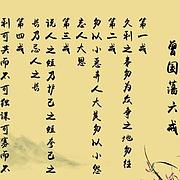 曾国藩六戒
第一戒
久利之事勿为众争之地勿往
第二戒
勿以小恶弃人大美勿以小怨
忘人大恩
第三戒
说人之短乃护己之短夸己之
长乃忌人之长
第四戒
利可共而不可独谋可寡而不